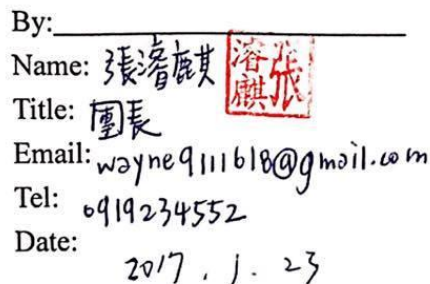 By:
Name: 張濬麒
張溶麒
Title: 團長
Email: wayne9111618@gmail.com
Tel: 0919234552
Date:
2017.1.23